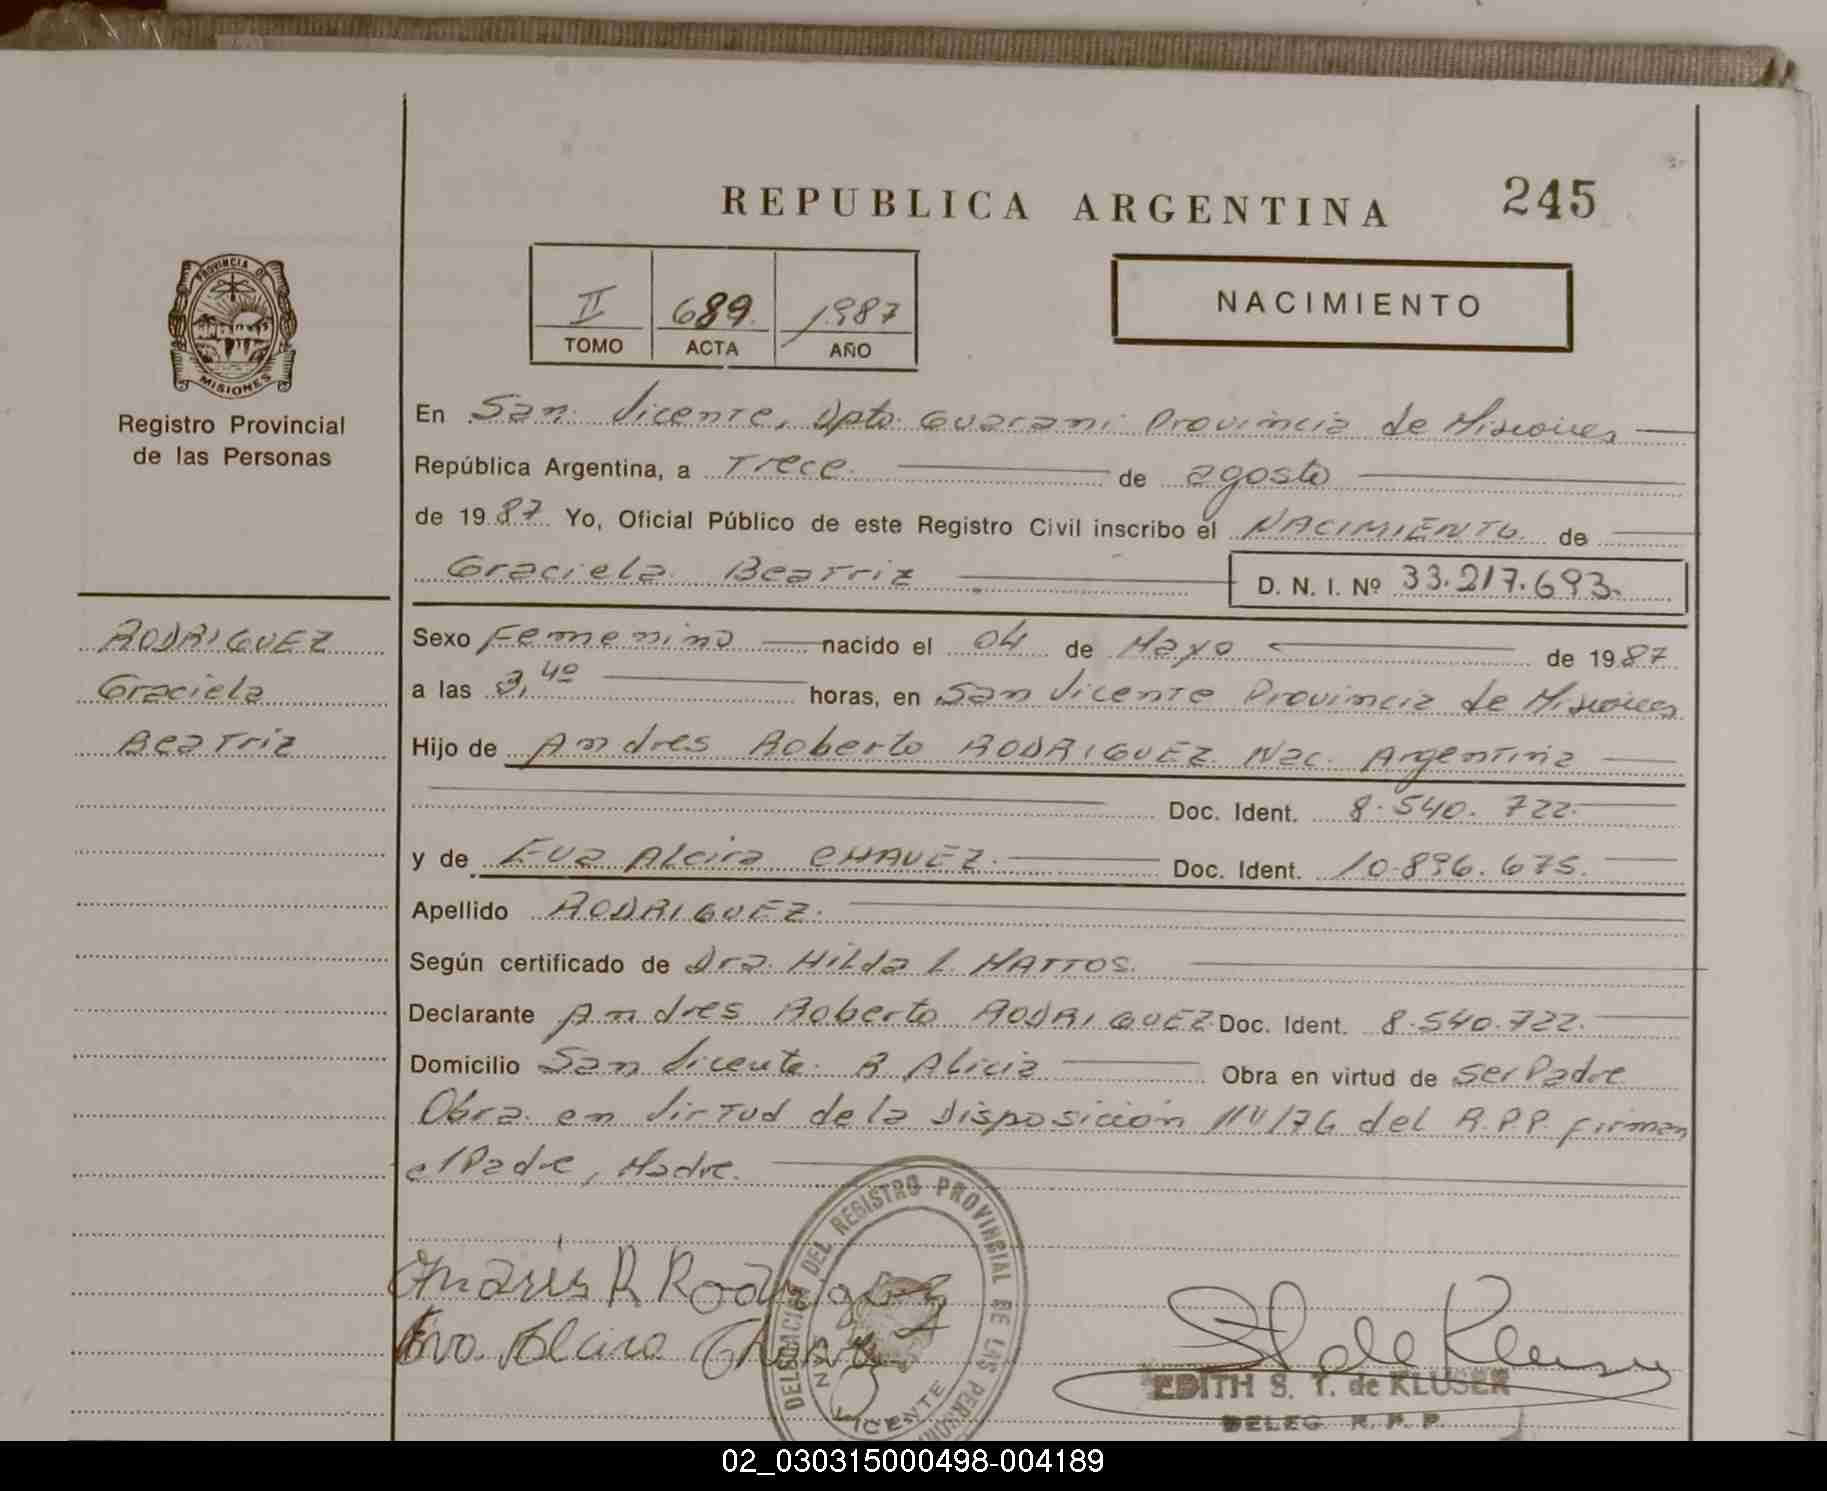 245
REPUBLICA ARGENTINA
PROVINCIA DE
MISIONES
Registro Provincial
de las Personas
II 689 1987
TOMO ACTA AÑO
NACIMIENTO
En San Vicente, Dpto. Guarani Provincia de Misiones
República Argentina, a Trece de agosto
de 1987 Yo, Oficial Público de este Registro Civil inscribo el NACIMIENTO de
Graciela Beatriz D. N. I. Nº 33.217.693.
RODRIGUEZ
Graciela
Beatriz
Sexo Femenino nacido el 04 de Mayo de 1987
a las 3,40 horas, en San Vicente Provincia de Misiones
Hijo de Andres Roberto RODRIGUEZ Nac. Argentina
Doc. Ident. 8.540.722.
y de Eva Alcira CHAVEZ. Doc. Ident. 10.896.675.
Apellido RODRIGUEZ.
Según certificado de Dra. Hilda L. MATTOS.
Declarante Andres Roberto RODRIGUEZ Doc. Ident. 8.540.722.
Domicilio San Vicente. B Alicia Obra en virtud de ser Padre
Obra en virtud de la Disposición del R.P.P. firman
el Padre, Madre.
R Rodriguez
Eva Alcira
DELEGACION DEL REGISTRO PROVINCIAL DE LAS PERSONAS
VICENTE
EDITH S. T. de KLUSER
DELEG. R. P. P.
02_030315000498-004189